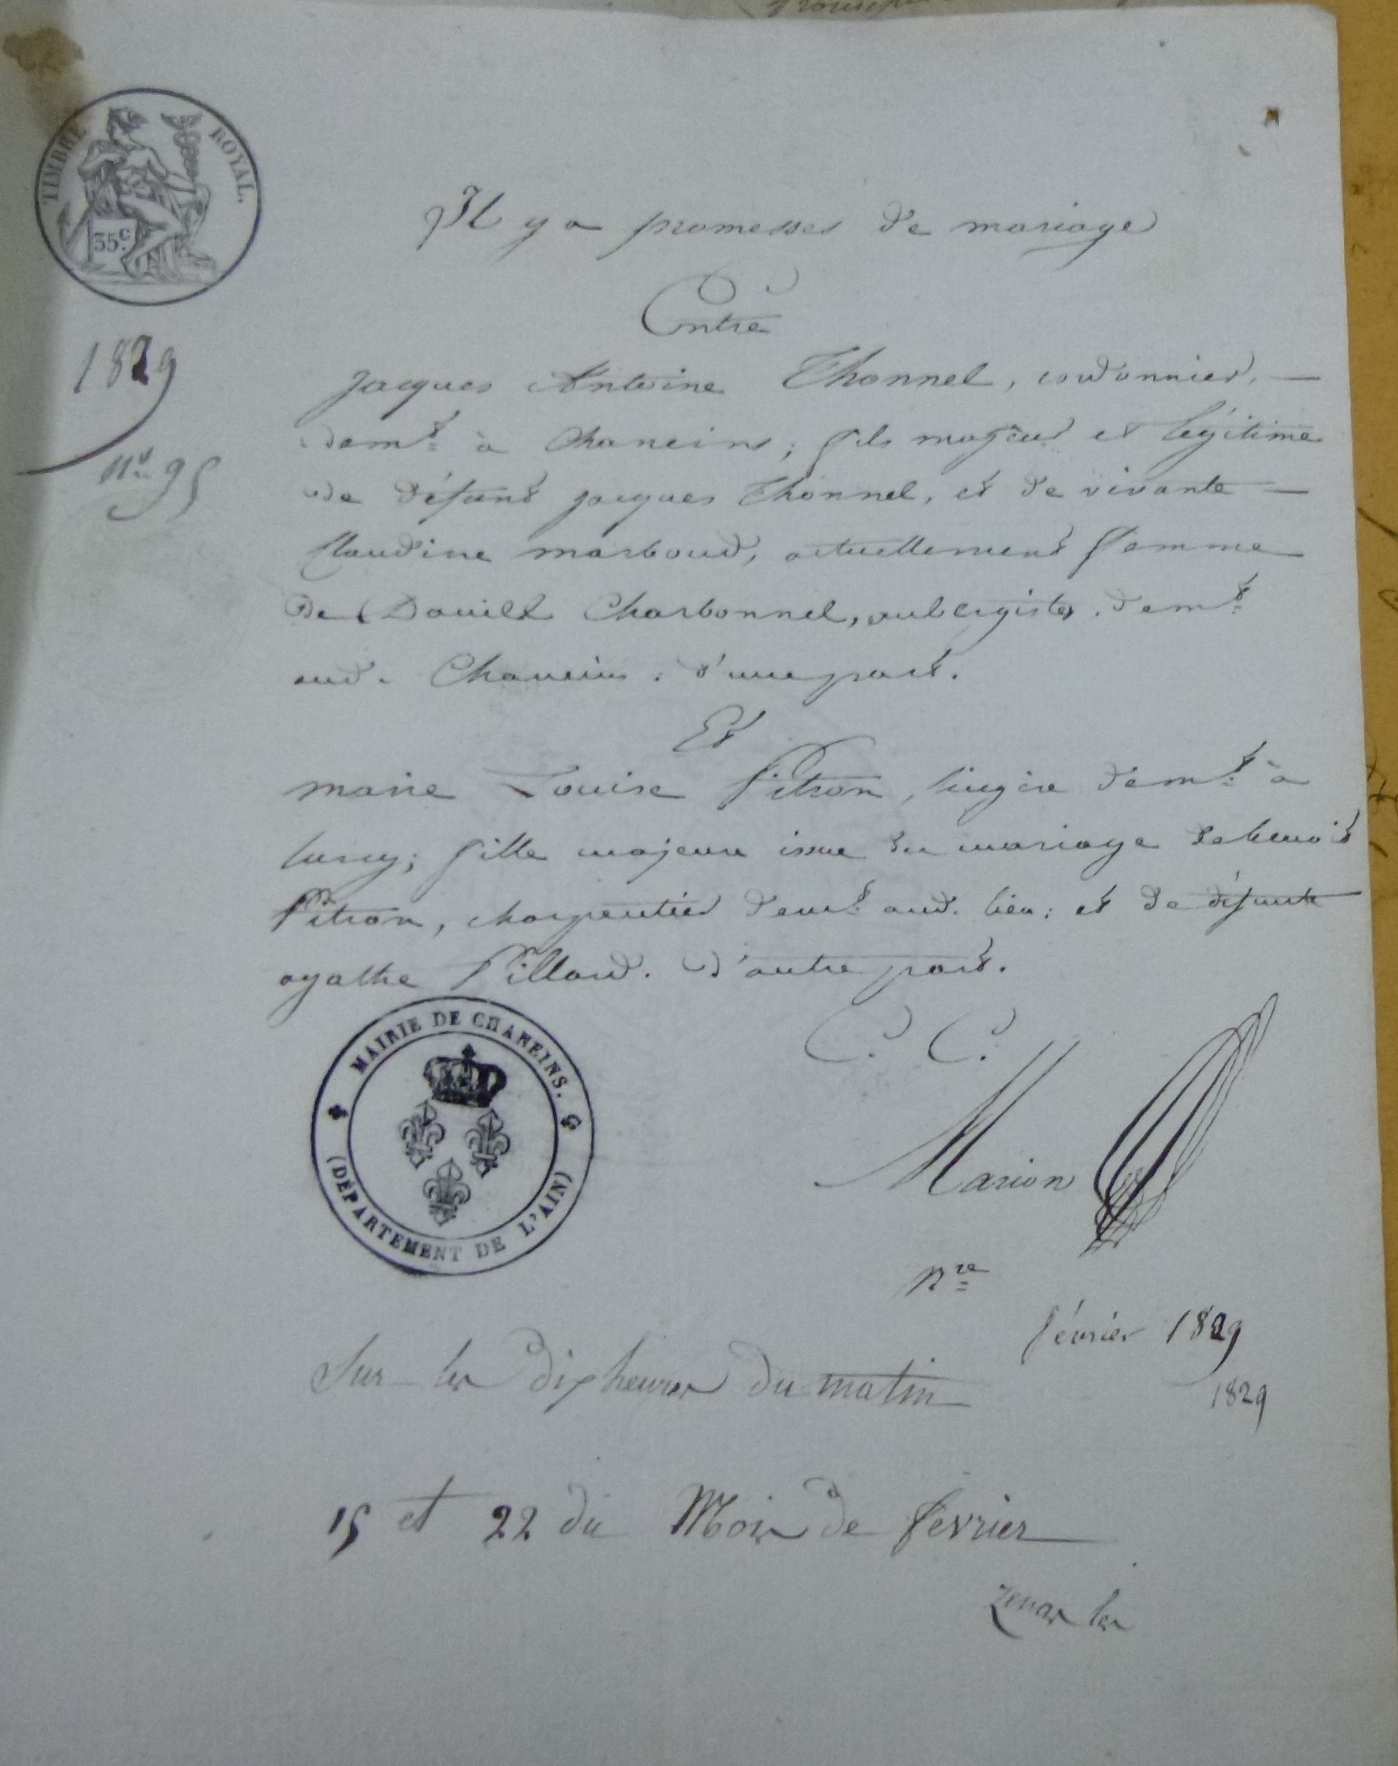 TIMBRE ROYAL.
35.c
1829
N.o 95
Il y a promesses de mariage
Entre
jacques Antoine Thonnel, cordonnier,
dem.t à Chaneins; fils majeur et légitime
de défunt jacques Thonnel, et de vivante
Claudine marboud, actuellement femme
de Charbonnel, aubergiste, dem.t
aud. Chaneins. d'une part.
Et
marie Louise Pitron, lingère dem.t à
lurcy; fille majeure issue du mariage de benoit
Pitron, charpentier dem.t aud. lieu; et de défunte
agathe Pillard. d'autre part.
C. C.
MAIRIE DE CHANEINS.
(DÉPARTEMENT DE L'AIN)
Marion
N.re
février 1829
Sur les dix heures du matin
1829
15 et 22 du Mois de fevrier
les